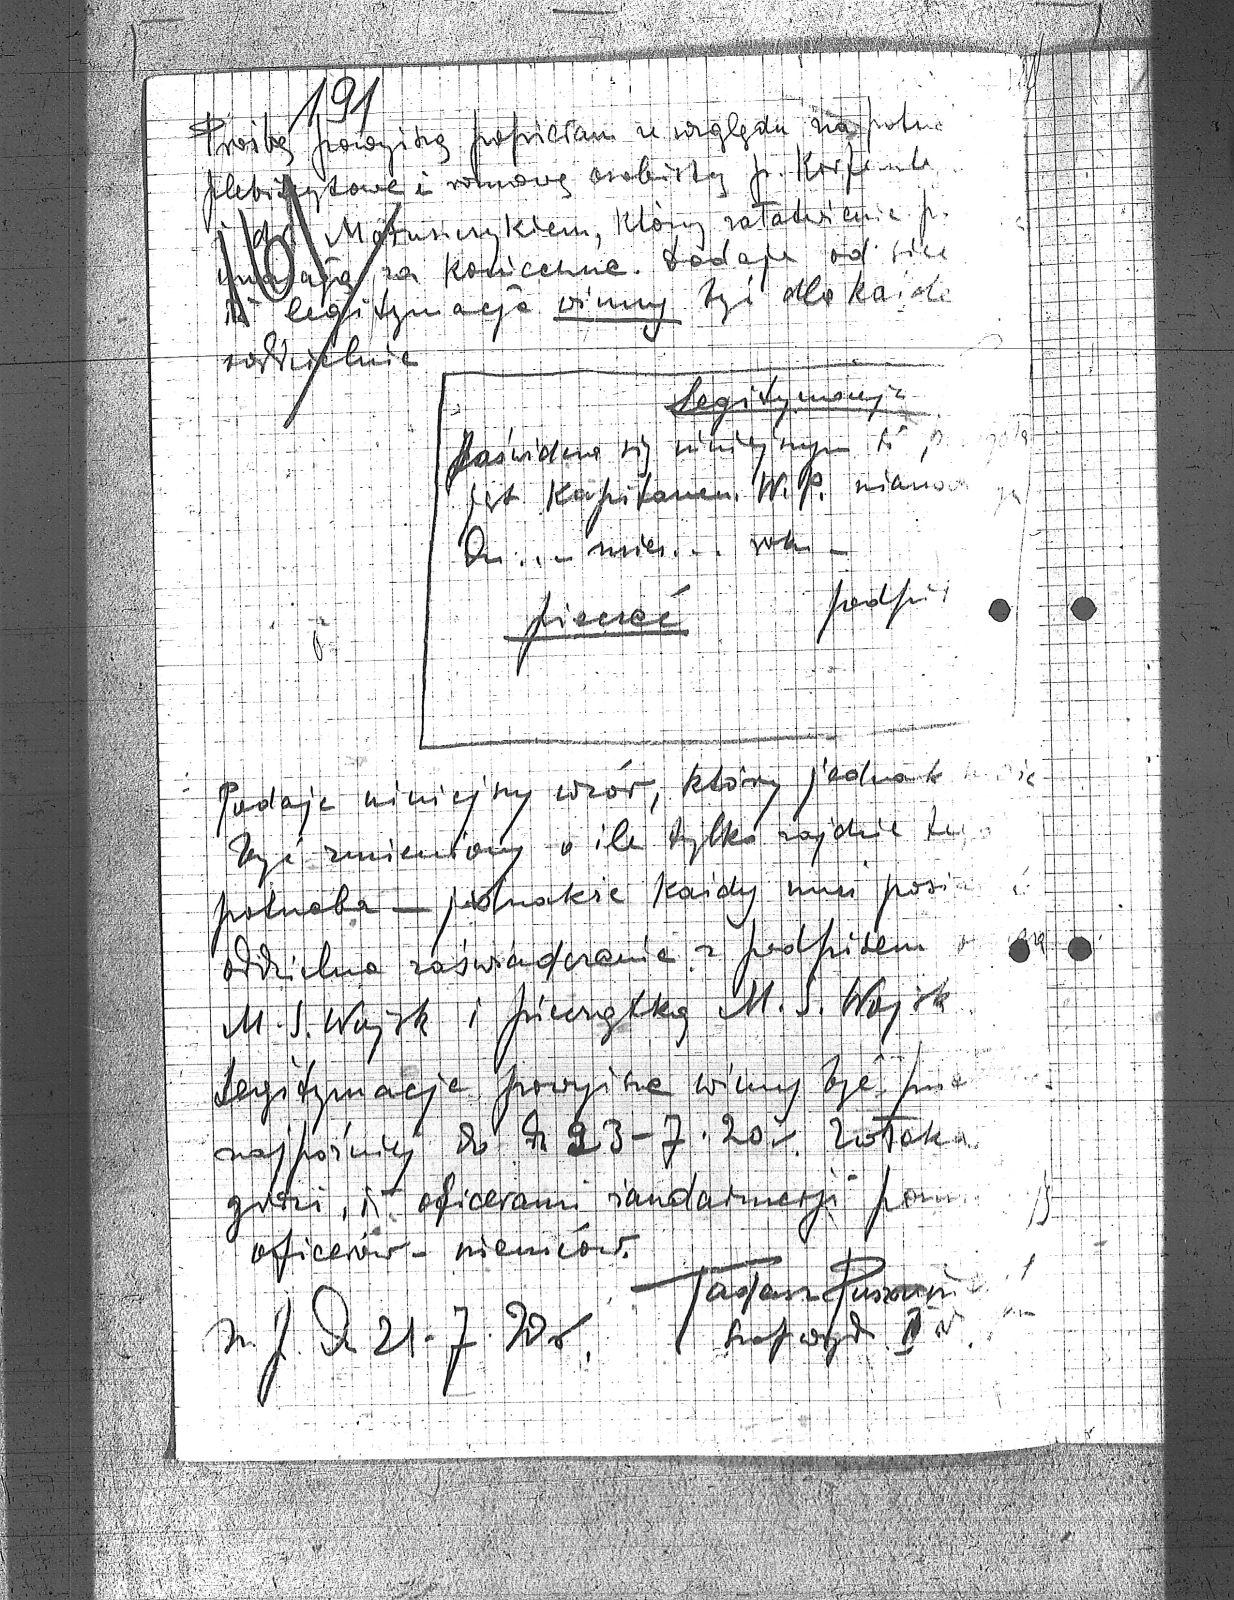 191
Prośbę powyższą popieram ze względu na potrz
plebiscytowe i rozmowę osobistą p. Korfante
i dr. Matusiczykiem, który załatwienie p.
uważają za konieczne. Dodaję od sieb
iż legitymacje winny być dla każde
oddzielnie
161
Legitymacja
Zaświadcza się niniejszym iż p.
jest Kapitanem W. P. mianow
Dn ... mies... roku –
pieczęć podpis
Podaję niniejszy wzór, który jednak może
być zmieniony o ile tylko zajdzie tego
potrzeba — jednakże każdy musi posia
oddzielne zaświadczenie z podpisem
M. S. Wojsk i pieczątką M. S. Wojsk
Legitymacje powyższe winny być
najpóźniej do dn 23-7.20r.
godzi, iż oficerami żandarmerji
oficerów - niemców.
Tadeusz
m. p. Dn 21-7.20r. Szef wydz. II